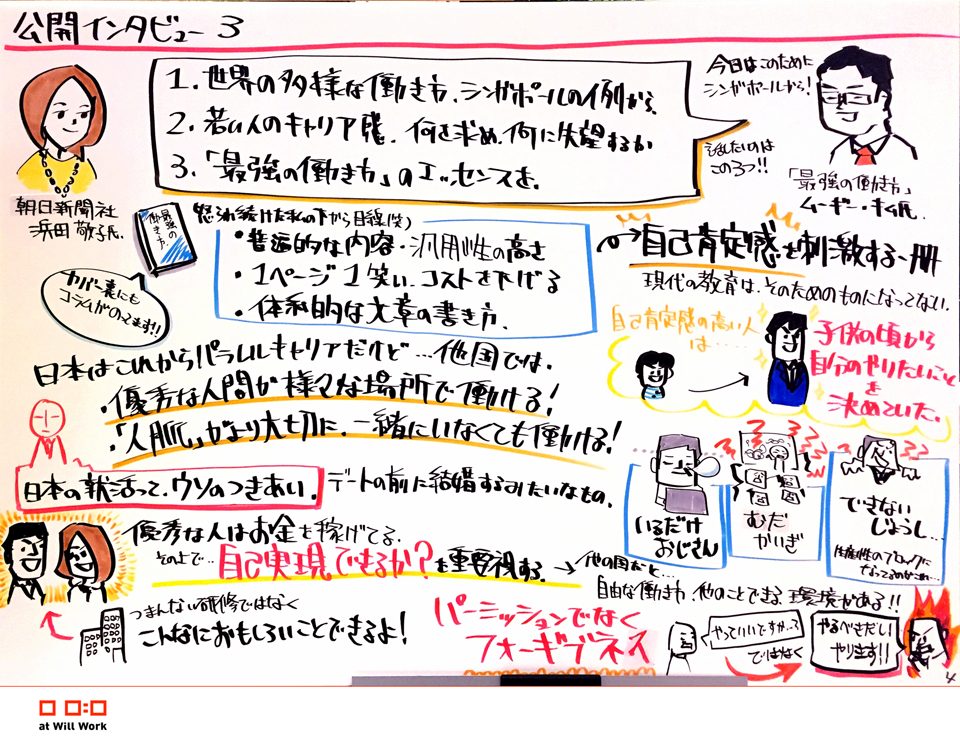 公開インタビュー 3
1. 世界の多様な働き方、シンガポールの例から
2. 若い人のキャリア感、何を求め、何に失望するか
3. 「最強の働き方」のエッセンスを。
今日はこのために
シンガポールから!
話したいのは
この3つ!!
「最強の働き方」
ムーギー・キム氏
朝日新聞社
浜田 敬子氏
最強の
働き方
カバー裏にも
コラムがのってます!!
怒られ続けた私の下から目線(笑)
・普遍的な内容・汎用性の高さ
・1ページ1笑い、コストを下げる
・体系的な文章の書き方、
自己肯定感を刺激する一冊
現代の教育は、そのためのものになってない。
自己肯定感の高い人
は……
子供の頃から
自分のやりたいこと
を
決めていた。
日本はこれからパラレルキャリアだけど…他国では、
・優秀な人間が様々な場所で働ける!
・「人脈」がより大切に、一緒にいなくても働ける!
日本の就活って、ウソのつきあい。
デートの前に結婚するみたいなもの。
いるだけ
おじさん
むだ
かいぎ
できない
じょうし…
生産性のブロックに
なってるのがこれ…
優秀な人はお金を稼げてる。
その上で…自己実現できるか?を重要視する。→他の国だと…
自由な働き方、他のことできる環境がある!!
つまんない研修ではなく
こんなにおもしろいことできるよ!
パーミッションでなく
フォーギブネス
やっていいですか…?
ではなく
やるべきだし
やります!!
4
at Will Work